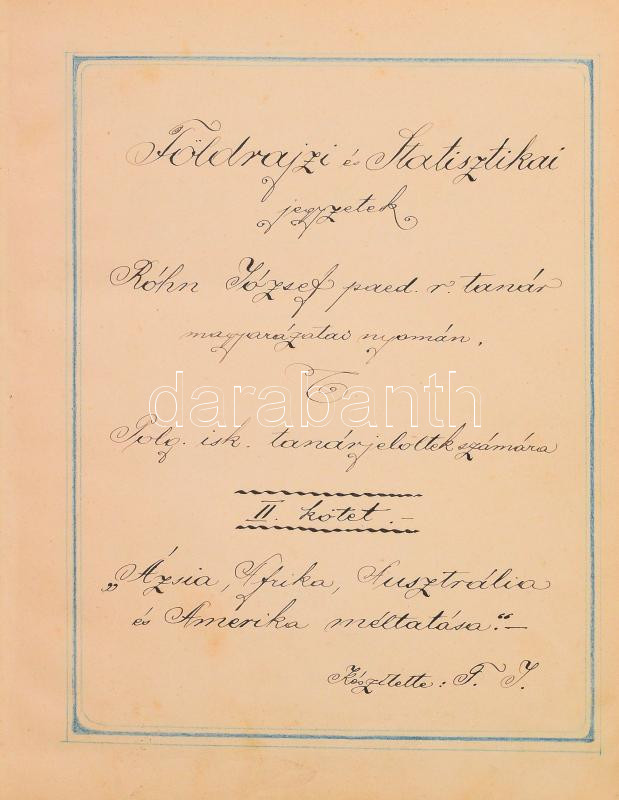 Földrajzi és Statisztikai
jegyzetek
Róhn József paed. r. tanár
magyarázatai nyomán.
darabanth
Polg. isk. tanárjelöltek számára
II. kötet.–
„Ázsia, Afrika, Ausztrália
és Amerika méltatása."–
Készítette: F. J.